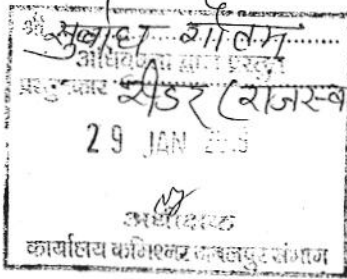 श्री सुबोध गौतम
अधिवक्ता द्वारा प्रस्तुत
रीडर (राजस्व
29 JAN
अधीक्षक
कार्यालय कमिश्नर जबलपुर संभाग